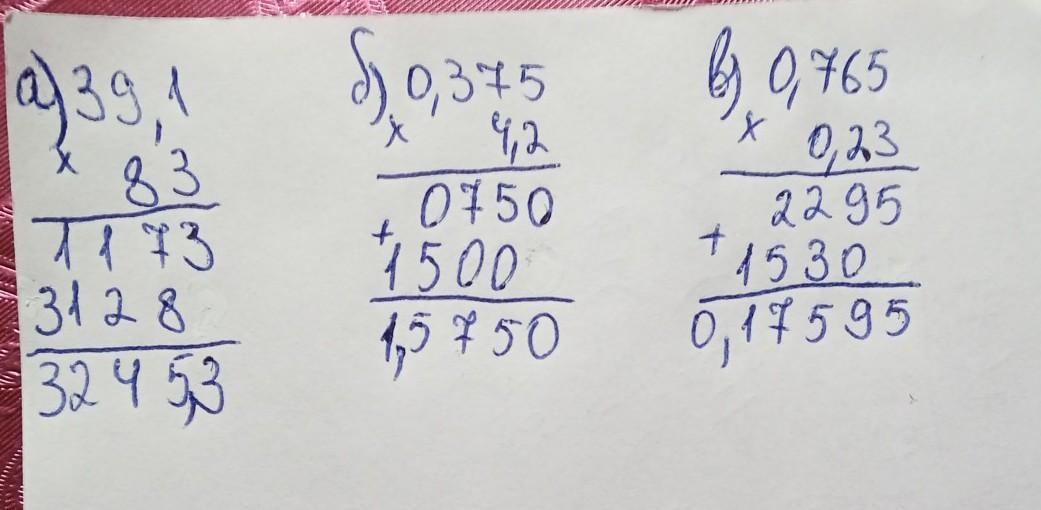 а) 39,1
× 83
1173
3128
3245,3
б) 0,375
× 4,2
0750
+
1500
1,5750
в) 0,765
× 0,23
2295
+
1530
0,17595